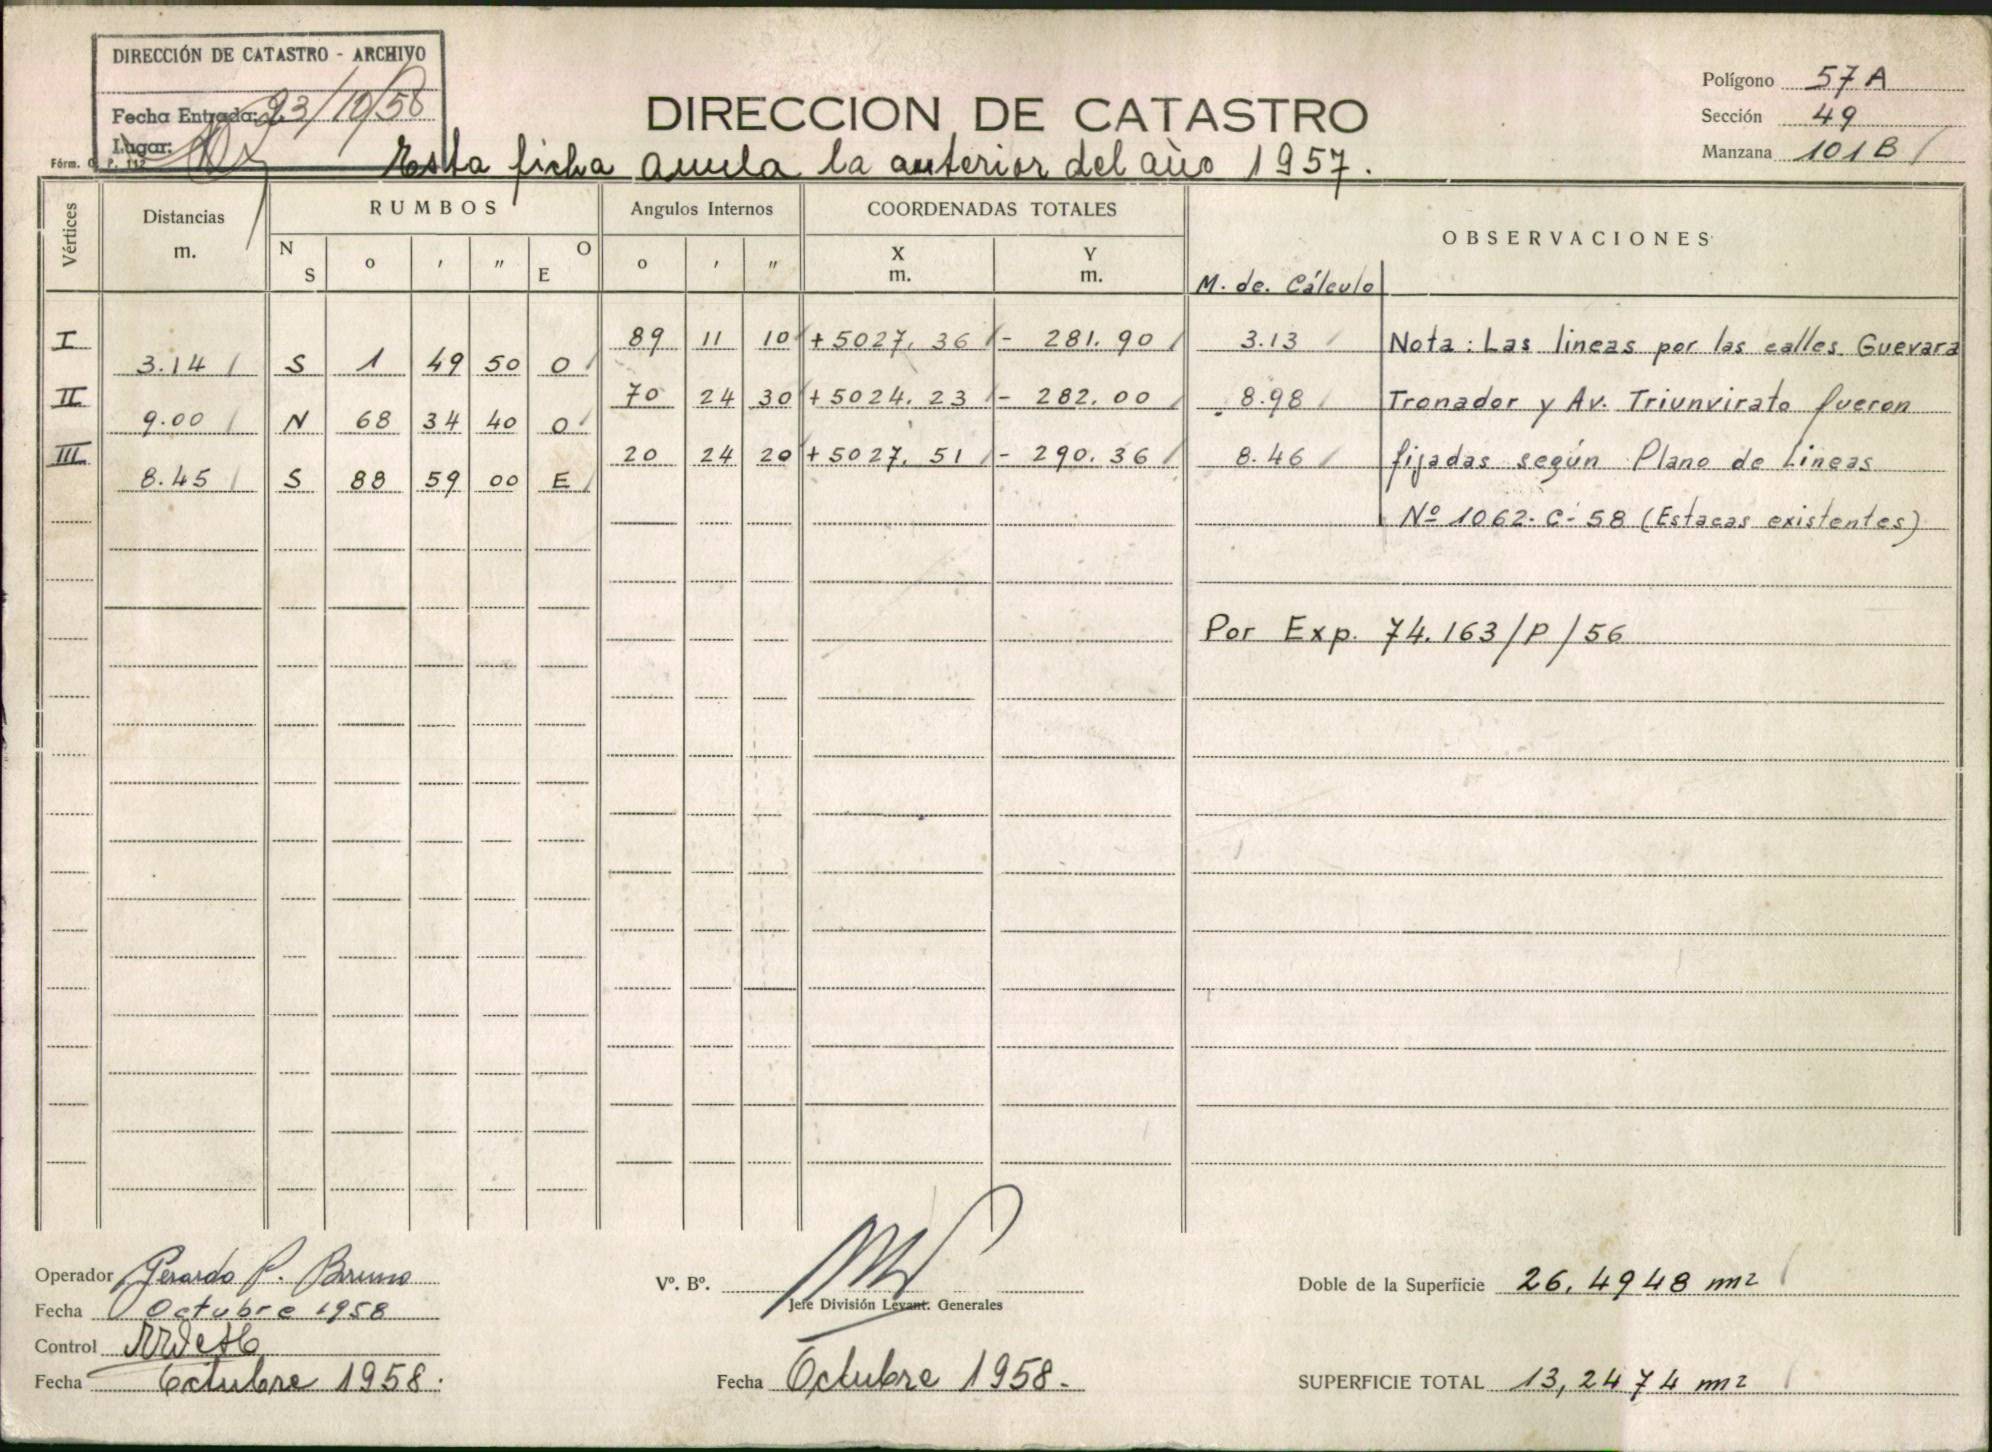 DIRECCIÓN DE CATASTRO - ARCHIVO
Fecha Entrada: 23/10/58
Lugar:
Fórm. C. P. 112
DIRECCION DE CATASTRO
Esta ficha anula la anterior del año 1957.
Polígono 57 A
Sección 49
Manzana 101 B
Vértices
Distancias
m.
RUMBOS
N S
o ' "
E O
Angulos Internos
o ' "
COORDENADAS TOTALES
X m.
Y m.
OBSERVACIONES
M. de. Cálculo
I 89 11 10 + 5027. 36 - 281. 90 3.13 Nota: Las lineas por las calles Guevara
3.14 S 1 49 50 O
II 70 24 30 + 5024. 23 - 282. 00 8.98 Tronador y Av. Triunvirato fueron
9.00 N 68 34 40 O
III 20 24 20 + 5027. 51 - 290. 36 8.46 fijadas según Plano de Lineas
8.45 S 88 59 00 E
Nº 1062-C-58 (Estacas existentes)
Por Exp. 74.163/P/56
Operador Gerardo P. Bruno
Fecha Octubre 1958
Control
Fecha Octubre 1958.
Vº. Bº.
Jefe División Levant. Generales
Fecha Octubre 1958.
Doble de la Superficie 26,4948 m2
SUPERFICIE TOTAL 13,2474 m2